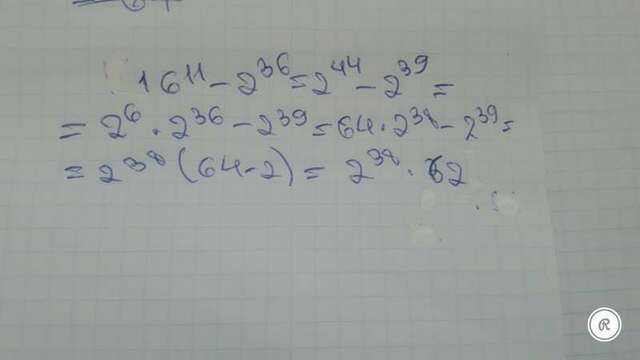 16¹¹ - 2³⁶ = 2⁴⁴ - 2³⁹ =
= 2⁶ · 2³⁶ - 2³⁹ = 64 · 2³⁸ - 2³⁹ =
= 2³⁸ (64 - 2) = 2³⁸ · 62
R